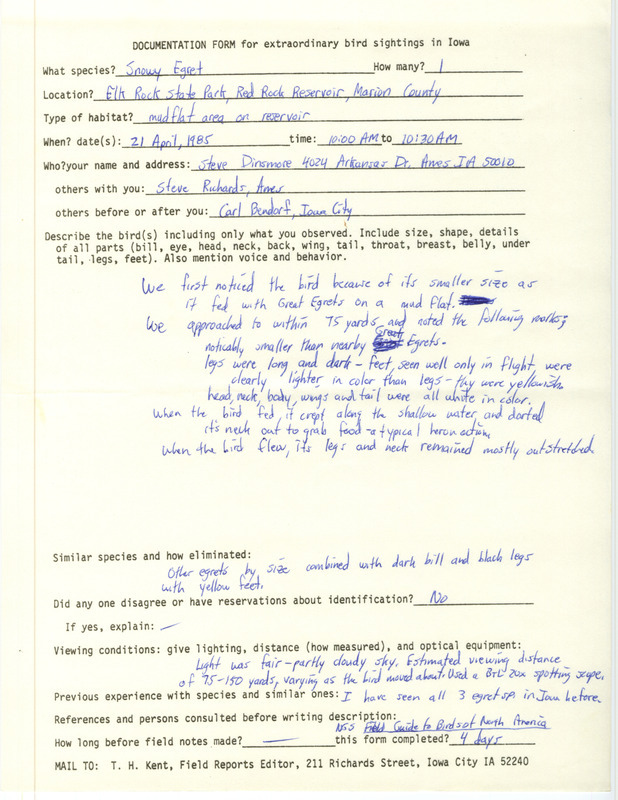 DOCUMENTATION FORM for extraordinary bird sightings in Iowa
What species? Snowy Egret How many? 1
Location? Elk Rock State Park, Red Rock Reservoir, Marion County
Type of habitat? mudflat area on reservoir
When? date(s): 21 April, 1985 time: 10:00 AM to 10:30 AM
Who? your name and address: Steve Dinsmore 4024 Arkansas Dr. Ames IA 50010
others with you: Steve Richards, Ames
others before or after you: Carl Bendorf, Iowa City
Describe the bird(s) including only what you observed. Include size, shape, details
of all parts (bill, eye, head, neck, back, wing, tail, throat, breast, belly, under
tail, legs, feet). Also mention voice and behavior.
We first noticed the bird because of its smaller size as
it fed with Great Egrets on a mud flat.
We approached to within 75 yards and noted the following marks;
noticably smaller than nearby Great Egrets.
legs were long and dark - feet, seen well only in flight were
clearly lighter in color than legs - they were yellowish.
head, neck, body, wings and tail were all white in color.
When the bird fed, it crept along the shallow water and darted
it's neck out to grab food - a typical heron action.
When the bird flew, its legs and neck remained mostly outstretched.
Similar species and how eliminated:
Other egrets by size combined with dark bill and black legs
with yellow feet.
Did any one disagree or have reservations about identification? No
If yes, explain: —
Viewing conditions: give lighting, distance (how measured), and optical equipment:
Light was fair - partly cloudy sky. Estimated viewing distance
of 75-150 yards, varying as the bird moved about. Used a B+L 20x spotting scope.
Previous experience with species and similar ones: I have seen all 3 egret sp. in Iowa before.
References and persons consulted before writing description:
NGS Field Guide to Birds of North America
How long before field notes made? — this form completed? 4 days
MAIL TO: T. H. Kent, Field Reports Editor, 211 Richards Street, Iowa City IA 52240